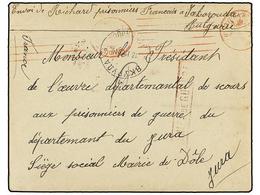 Envoi de Richard prisonnier Français à
Bulgarie
France
Monsieur le Président
de l'œuvre départemantal de scours
aux prisonniers de guerre du
département du Jura
Siège social Mairie de Dôle
Jura